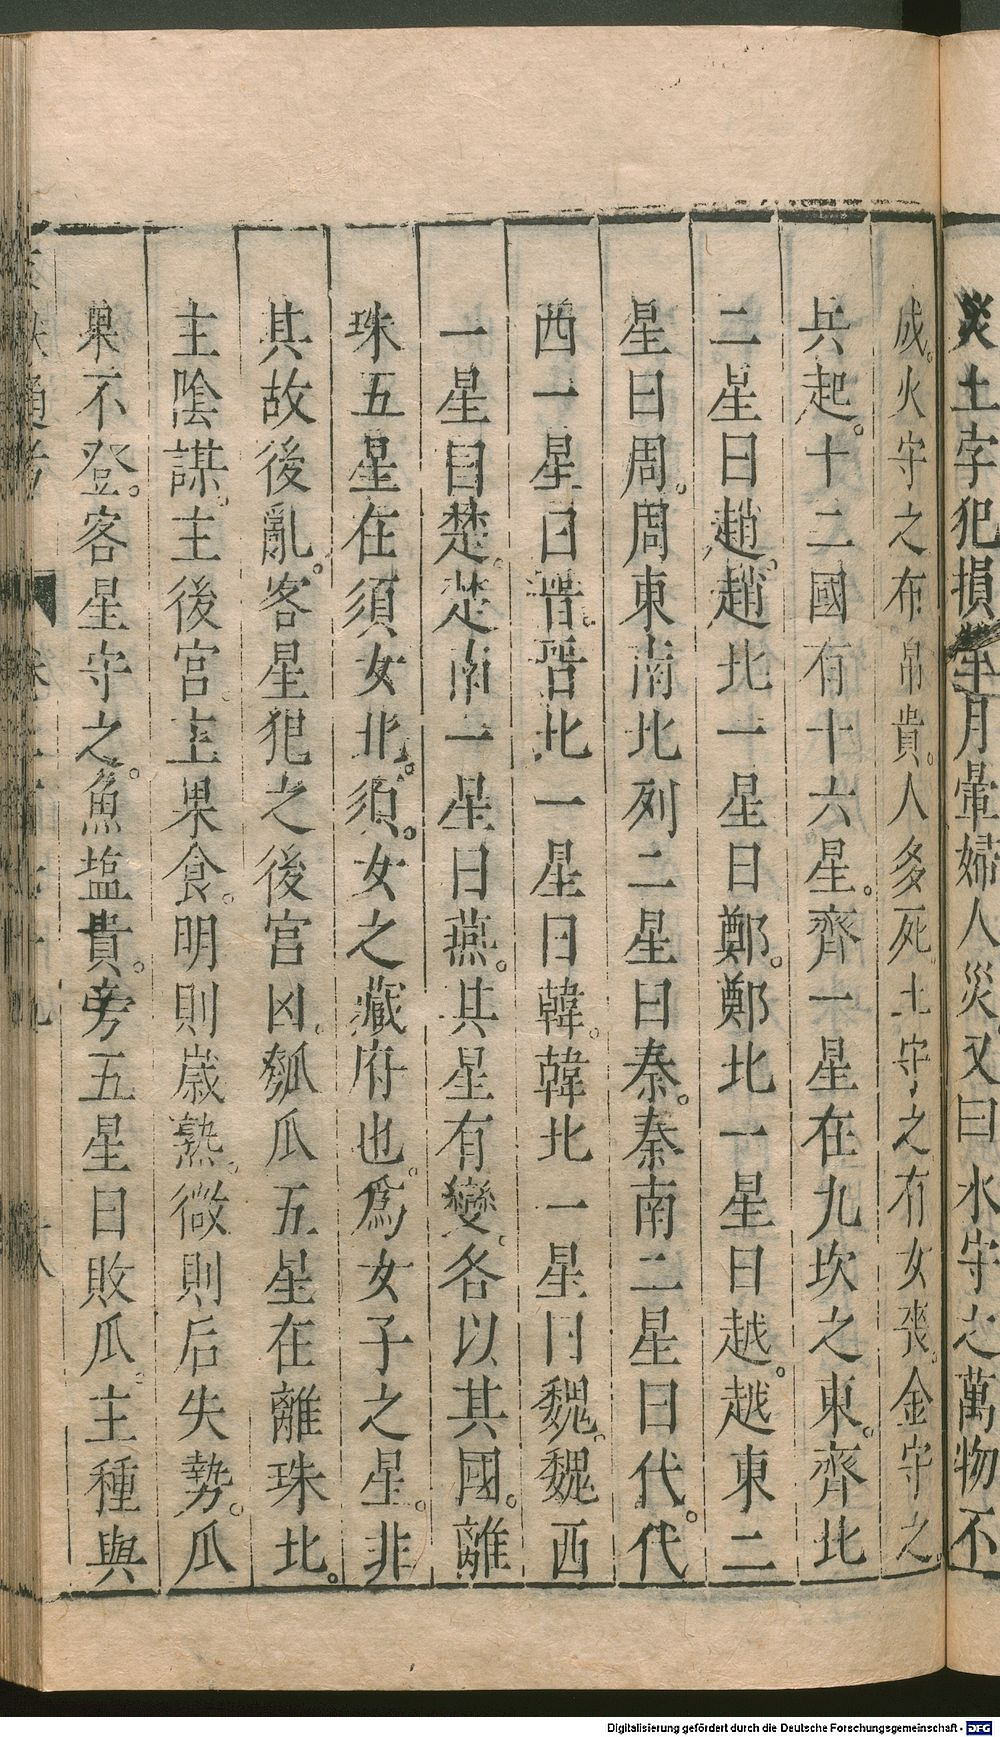 災土字犯損月暈婦人災又曰水守之萬物不
成火守之布帛貴人多死土守之有女喪金守之
兵起十二國有十六星齊一星在九坎之東齊北
二星曰趙趙北一星曰鄭鄭北一星曰越越東二
星曰周周東南北列二星曰秦秦南二星曰代代
西一星曰晉晉北一星曰韓韓北一星曰魏魏西
一星曰楚楚南一星曰燕其星有變各以其國離
珠五星在須女北須女之藏府也為女子之星非
其故後亂客星犯之後宮凶瓠瓜五星在離珠北
主陰謀主後宮主果食明則歲熟微則后失勢瓜
果不登客星守之魚塩貴旁五星曰敗瓜主種與
Digitalisierung gefördert durch die Deutsche Forschungsgemeinschaft - DFG